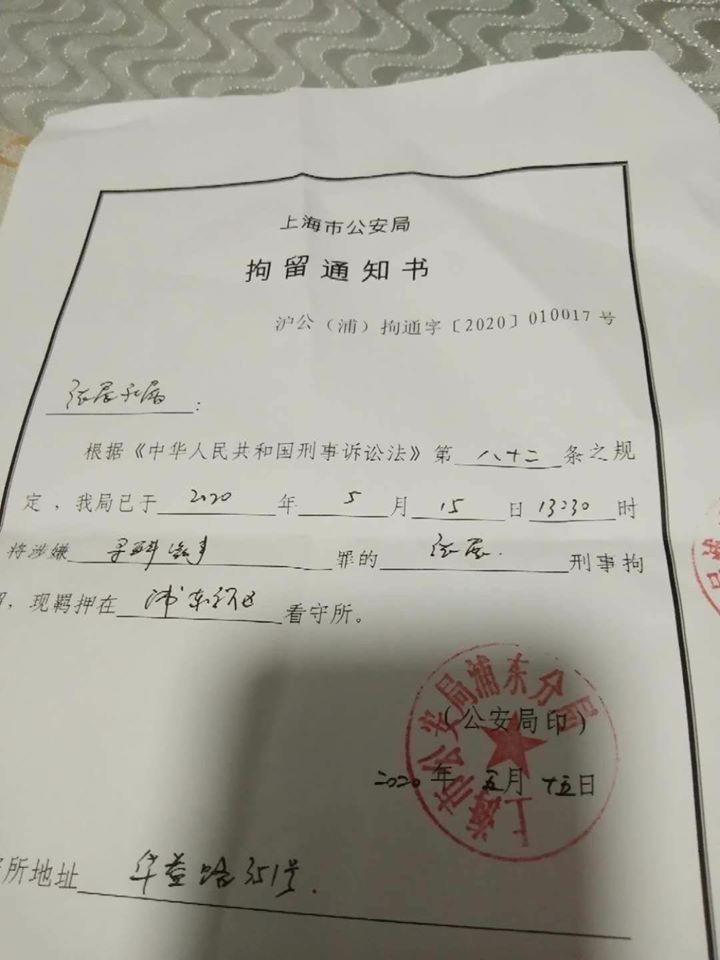 上海市公安局
拘留通知书
沪公（浦）拘通字〔2020〕010017号
张展家属：
根据《中华人民共和国刑事诉讼法》第八十二条之规
定，我局已于2020年5月15日13:30时
将涉嫌寻衅滋事罪的张展刑事拘
，现羁押在浦东新区看守所。
（公安局印）
上海市公安局浦东分局
2020年五月十五日
所地址 华益路351号.